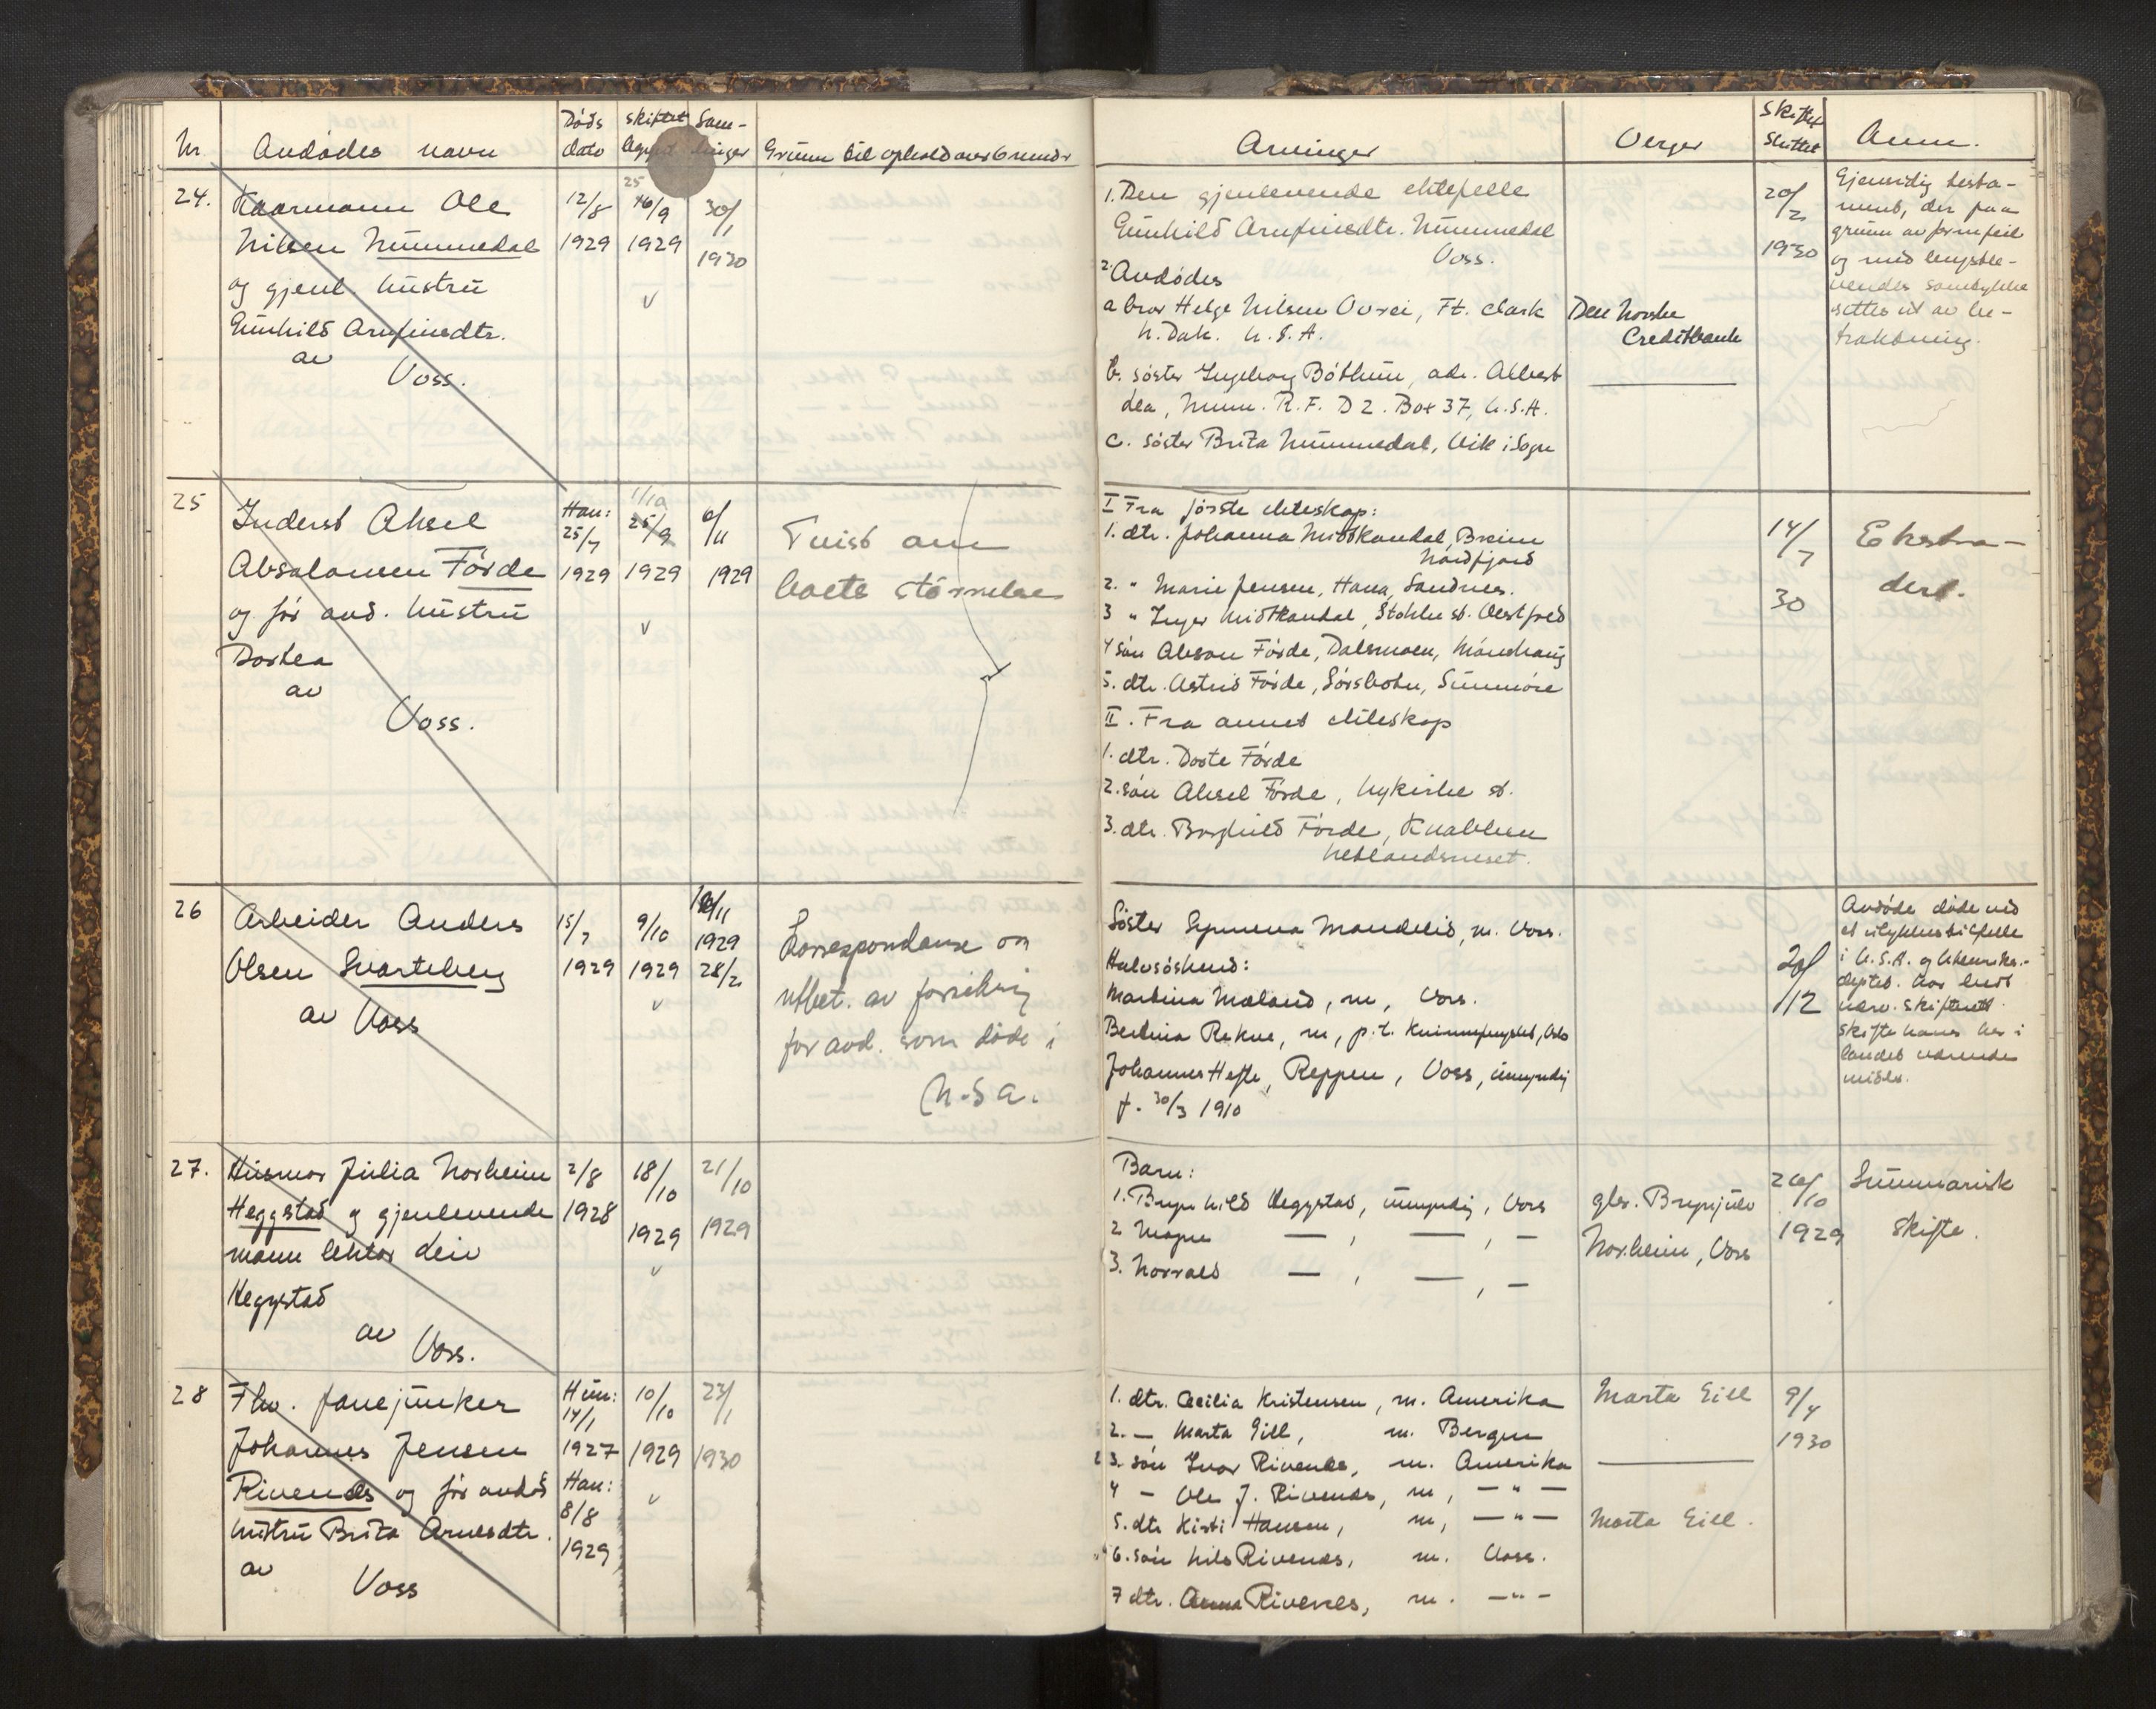 Nr
Avdødes navn
Døds dato
skiftet
Sam-
Grunn til ophold over 6 mndr
24.
Kaarmann Ole
Nilsen Nummedal
og gjenl. hustru
Gunhild Arnfinnsdtr.
av
Voss.
12/8
1929
25
16/9
1929
v
30/1
1930
25
Inderst Aksel
Absalonsen Förde
og før avd. hustru
Dortea
av
Voss.
Han:
25/7
1929
1/10
25/9
1929
v
6/11
1929
Tvist om
boets størrelse
26
Arbeider Anders
Olsen Svarteberg
av Voss
15/7
1929
9/10
1929
v
1929
28/2
Korrespondanse om
utbet. av forsikring
for avd. som døde i
U.S.A.
27.
Husmor Julia Norheim
Heggstad og gjenlevende
mann lektor Leiv
Heggstad
av
Voss.
2/8
1928
18/10
1929
v
21/10
1929
28
Fhv. fanejunker
Johannes Jensen
Rivenes og før avdød
hustru Brita Arnesdtr.
av
Voss
Hun:
14/1
1927
Han:
8/8
1929
10/10
1929
v
23/1
1930
Arvinger
Verger
Skiftet sluttet
Anm.
1. Den gjenlevende ektefelle
Gunhild Arnfinnsdtr. Nummedal
Voss.
2. Avdødes
a bror Helge Nilsen Övrei, Ft. Clark
N. Dak. U.S.A.
b. søster Ingeborg Böthun, adr. Albert
Lea, Minn. R.F. D 2. Box 37, U.S.A.
c. søster Brita Nummedal, Vik i Sogn
Den Norske
Creditbank
20/2
1930
Gjensidig testa-
ment, der paa
grunn av formfeil
og med lengstle-
vendes samtykke
settes ut av be-
traktning.
I Fra første ekteskap:
1. dtr. Johanna Midtkandal, Breim
Nordfjord
2. " Marie Jensen, Hana, Sandnes.
3 " Inger Midtkandal, Stokke st. Vestfold
4 søn Absalon Förde, Dalsmoen,
5. dtr. Astrid Förde, Sunnmøre
II. Fra annet ekteskap
1. dtr. Dorte Förde
2. søn Aksel Förde, Nykirke st.
3. dtr. Borghild Förde, Knabben
Netlandsneset.
14/7
30
Ekstra-
dert.
Søster Synneva Mandelid, m. Voss.
Halvsøsken:
Martina Mæland, m, Voss.
Bertina Rekve, m, p.t. Kvinnefengslet, Oslo
Johannes Hefte, Reppen, Voss, umyndig
f. 30/3 1910
20/12
Avdøde døde ved
et ulykkestilfelle
i U.S.A. og Utenriks.-
deptet. har bedt
nærv. skifterett
skifte hans her i
landet værende
midler.
Barn:
1. Brynhild Heggstad, umyndig, Voss
2 Magne — , — , —
3. Norvald — , — , —
gbr. Brynjulv
Norheim, Voss
26/10
1929
Summarisk
skifte.
1. dtr. Cecilia Kristensen, m. Amerika
2. — Marta Gill, m. Bergen
3. søn Ivar Rivenes, m. Amerika
4 — Ole J. Rivenes, m, — " —
5. dtr Kisti Hansen, m, — " —
6. søn Nils Rivenes, m. Voss.
7 dtr. Anna Rivenes, m. — " —
Marta Gill
Marta Gill.
9/4
1930